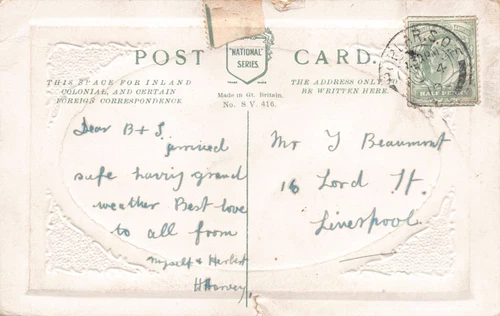 POST CARD.
"NATIONAL"
SERIES
THIS SPACE FOR INLAND
COLONIAL, AND CERTAIN
FOREIGN CORRESPONDENCE
Made in Gt. Britain.
No. S.V. 416.
THE ADDRESS ONLY TO
BE WRITTEN HERE.
HALF PENNY
Dear B & S.
arrived
safe having grand
weather Best love
to all from
myself & Herbert
H Harvey
Mr J Beaumont
16 Lord St.
Liverpool